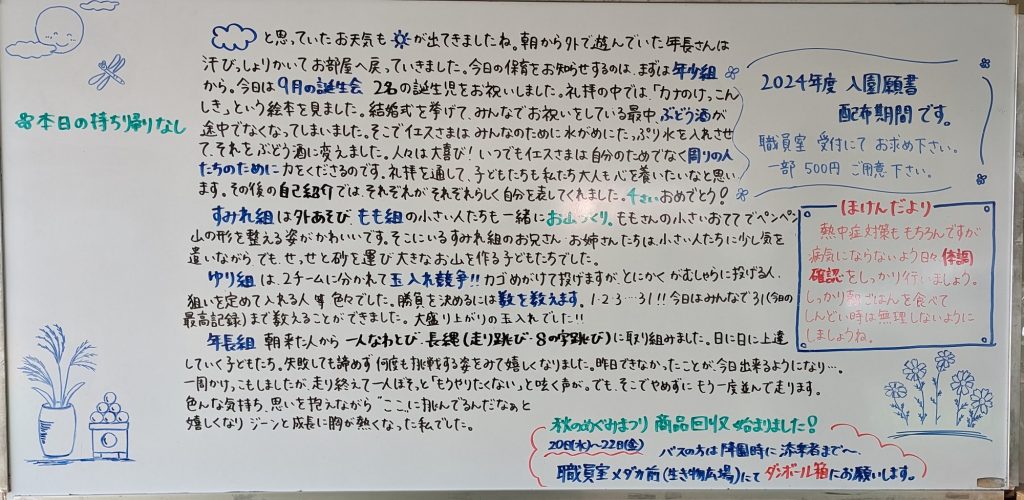 本日の持ち帰りなし
と思っていたお天気も が出てきましたね。朝から外で遊んでいた年長さんは
汗びっしょりかいてお部屋へ戻っていきました。今日の保育をお知らせするのは、まずは年少組
から。今日は9月の誕生会 2名の誕生児をお祝いしました。礼拝の中では、「カナのけっこん
しき」という絵本を見ました。結婚式を挙げて、みんなでお祝いをしている最中、ぶどう酒が
途中でなくなってしまいました。そこでイエスさまは みんなのために水がめにたっぷり水を入れさせ
て、それをぶどう酒に変えました。人々は大喜び!いつでもイエスさまは自分のためでなく周りの人
たちのために力をくださるのです。礼拝を通して、子どもたちも私たち大人も心を養いたいなと思い
ます。その後の自己紹介では、それぞれがそれぞれらしく自分を表してくれました。4さいおめでとう!
すみれ組は外あそび、もも組の小さい人たちも一緒にお山づくり。ももさんの小さいおててでペンペン
山の形を整える姿がかわいいです。そこにいるすみれ組のお兄さん・お姉さんたちは、小さい人たちに少し気を
遣いながらでも、せっせと砂を運び大きなお山を作る子どもたちでした。
ゆり組は、2チームに分かれて玉入れ競争!!カゴめがけて投げますが、とにかくがむしゃらに投げる人、
狙いを定めて入れる人等色々でした。勝負を決めるには数を数えます。1・2・3…31!!今日はみんなで31(今日の
最高記録)まで数えることができました。大盛り上がりの玉入れでした!!
年長組 朝来た人から 一人なわとび、長縄(走り跳び・8の字跳び)に取り組みました。日に日に上達
していく子どもたち。失敗しても諦めず 何度も挑戦する姿をみて嬉しくなりました。昨日できなかったことが、今日出来るようになり…。
一周かけっこもしましたが、走り終えて一人ぼそっと「もうやりたくない」と呟く声が。でも、そこでやめずに もう一度並んで走ります。
色んな気持ち、思いを抱えながら "ここ"に挑んでるんだなぁと
嬉しくなり ジーンと成長に胸が熱くなった私でした。
2024年度 入園願書
配布期間です。
職員室 受付にて お求め下さい。
一部 500円 ご用意下さい。
ほけんだより
熱中症対策ももちろんですが
病気にならないよう日々、体調
確認をしっかり行いましょう。
しっかり朝ごはんを食べて
しんどい時は無理しないように
しましょうね。
秋のめぐみまつり 商品回収 始まりました!
20日(水)~22日(金) バスの方は降園時に添乗者まで~、
職員室メダカ前(生き物広場)にて ダンボール箱にお願いします。